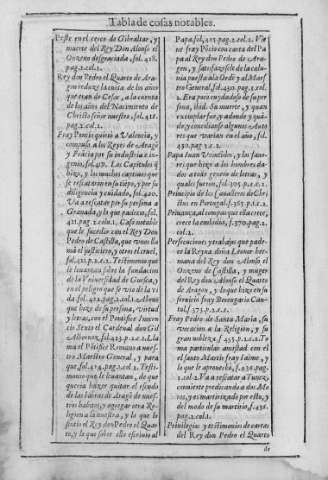 Tabla de cosas notables.
Peste en el cerco de Gibraltar, y
muerte del Rey Don Alonso el
Onzeno desgraciada. fol. 418.
pag. 2. col. 1.
Rey don Pedro el Quarto de Ara-
gon reduze la cuẽta de los años
que eran de Cesar, a la cuenta
de los años del Nacimiento de
Christo señor nuestro, f. 418.
pag. 2. col. 2.
Fray Ponce quitò a Valencia, y
compuso a los Reyes de Aragõ
y
por su industria e in-
genio, fol. 418. Las Capitulos q̃
hizo, y los muchos captiuos que
se rescataron en su tiẽpo, y por su
diligencia y cuydado, fol. 420.
Va a rescatar por su persona a
Granada, y lo que padece, fol.
421. pag. 2. col. 1. Caso notable
que le sucedio con el Rey Don
Pedro de Castilla, que vnos lla
mã el justiciero, y otros el cruel,
fol. 421. p. 2. c. 2. Testimonio que
le leuantan sobre la fundacion
de la Vniuersidad de Guesca, y
en el peligro que se vio de la vi
da fol. 422. pag. 2. col. 1. Abono
que hizo de su persona, virtud
y letras, con el Pontifice Inocen
cio Sexto el Cardenal don Gil
Albornoz, fol. 423. p. 1. c. 2. Lla
ma el Põtifice Romano a nues-
tro Maestro General, y para
que, fol. 424. pag. 2. col. 2. Testi-
monio que le leuantan, de que
queria hazer quitar el escudo
de las barras de Aragõ de nues-
tros habitos, y agregar otra Re
ligion a la nuestra, y lo que lo
sintio el Rey don Pedro el Quar
to, y lo que sobre ello escriuio al
Papa, fol. 425. pag. 2. col. 2. Va
con carta del Pa
pa al Rey don Pedro de Ara-
gon, y satisfazesele de la calu-
nia puesta a la Ordẽ y al Maes-
tro General, fol. 432. pag. 2. col.
2. Era poco cuydadoso de su per
sona, ibid. Su muerte, y quan
exemplar fue, y adonde y quã-
do, y concilianse algunos Auto
res que varian en el año, fol.
432. pag. 2. col. 2.
Papa Iuan Veintidos, y los fauo-
res que hizo a los hombres da-
dos a todo genero de letras, y
quales fueron, fol. 395. p. 2. c. 1.
Principio de los Caualleros de Chri
stus en Portugal, f. 365. p. 1. c. 1.
Priuança, al compas que ella crece,
crece la embidia, f. 370. pag. 2.
col. 1.
Persecuciones y trabajos que pade-
cio la Reyna doña Leonor her-
mana del Rey don Alonso el
Onzeno de Castilla, y muger
del Rey don Alonso el Quarto
de Aragon, y lo que hizo en su
seruicio fray Berengario Can-
tul, f. 375. p. 1. c. 1.
Fray Pedro de Santa Maria, su
vocacion a la Religion, y su
gran nobleza. f 435. p. 1. c. 1. To
ma particular amistad con el
el santo Martir fray Iaime, y
lo que le aprouecho, f. 436. pag.
1. col. 2. Va a rescatar a Tunez,
conuierte predicando a dos Mo-
ros, y es martirizado por esto, y
del modo de su martirio, f. 436.
pag. 2. col. 2.
Priuilegios y testimonios de cartas
del Rey don Pedro el Quarto
de